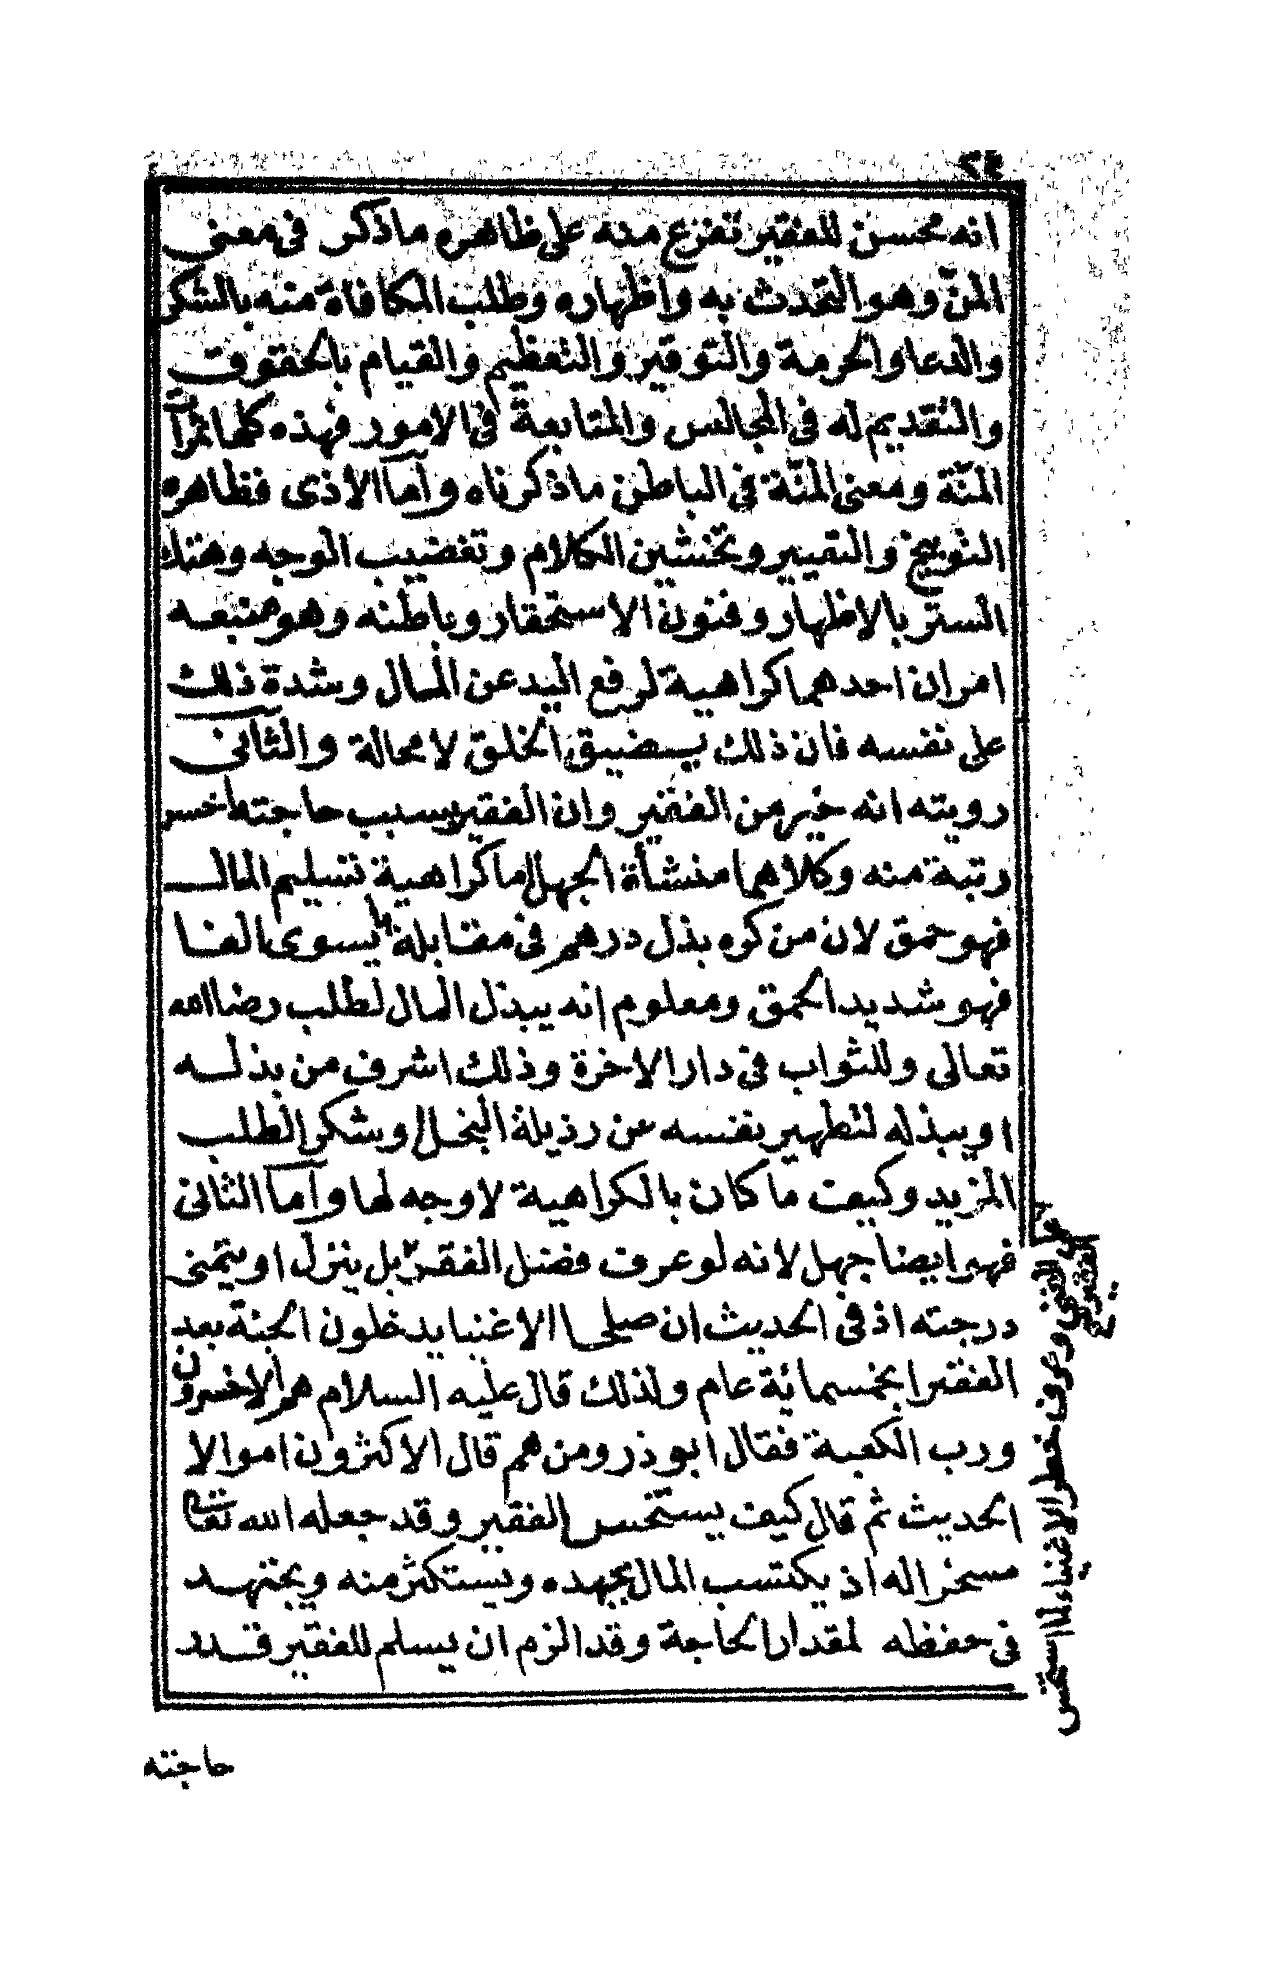 ٢٤
انه محسن للفقير تفزع منه على ظاهره ماذكر في معنى
المنّ وهو التحدث به واظهاره وطلب المكافاة منه بالشكر
والدعا والحرمة والتوقير والتعظيم والقيام بالحقوق
والتقديم له في المجالس والمتابعة في الامور فهذه كلها ثمرات
المنّة ومعنى المنّة في الباطن ماذكرناه وأما الاذى فظاهره
التوبيخ والتعيير وتخشين الكلام وتغضيب الوجه وهتك
الستر بالاظهار وفنون الاستحقار وباطنه وهو منبعه
امران احدهما كراهية لرفع اليد عن المال وشدة ذلك
على نفسه فان ذلك يضيق الخلق لا محالة والثانى
رويته انه خير من الفقير وان الفقير بسبب حاجته اخس
رتبة منه وكلاهما منشأة الجهل اما كراهية تسليم المال
فهو حمق لان من كره بذل درهم في مقابلة ما يسوى الفا
فهو شديد الحمق ومعلوم انه يبذل المال لطلب رضا الله
تعالى وللثواب في دار الاخرة وذلك اشرف من بذله
او يبذله لتطهير نفسه عن رذيلة البخل او شكر الطلب
المزيد وكيف ما كان بالكراهية لا وجه لها وأما الثانى
فهو ايضا جهل لانه لو عرف فضل الفقر بل ينزل او يتمنى
درجته اذ في الحديث ان صلحا الاغنيا يدخلون الجنة بعد
الفقرا بخمسمائة عام ولذلك قال عليه السلام هم الاخسرون
ورب الكعبة فقال ابو ذر ومن هم قال الاكثرون اموالا
الحديث ثم قال كيف يستخس الفقير وقد جعله الله تعالى
مسخرا له اذ يكتسب المال بجهده ويستكثر منه ويجتهد
في حفظه لمقدار الحاجة وقد الزم ان يسلم للفقير قدر
على الغنى وعرف خطر الاغنياء لما استخس
الفقير
صح
حاجته